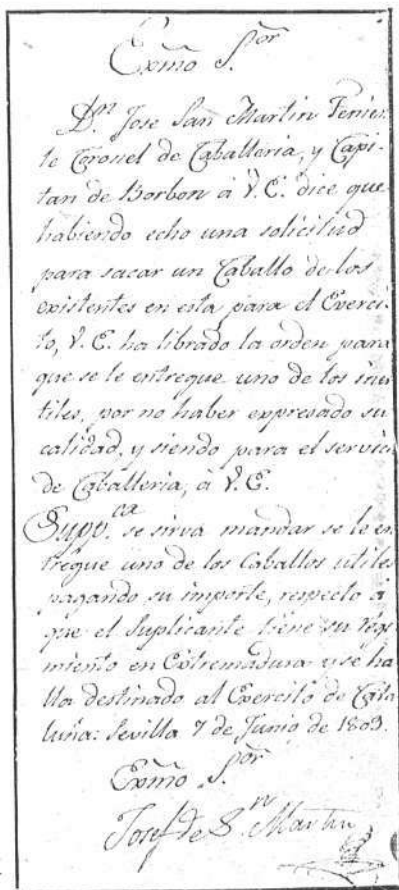 Exmo S.or
D.n Jose San Martin Tenien-
te Coronel de Caballeria, y Capi-
tan de Borbon á V.E. dice que
habiendo echo una solicitud
para sacar un Caballo de los
existentes en esta para el Exerci-
to, V.E. ha librado la orden para
que se le entregue uno de los inu-
tiles, por no haber expresado su
calidad, y siendo para el servicio
de Caballeria, á V.E.
Supp.ca se sirva mandar se le en-
tregue uno de los Caballos utiles
pagando su importe, respecto á
que el Suplicante tiene su regi-
miento en Extremadura y se ha-
lla destinado al Exercito de Cata-
luña: Sevilla 7 de Junio de 1809.
Exmo S.or
Josef de S.n Martin